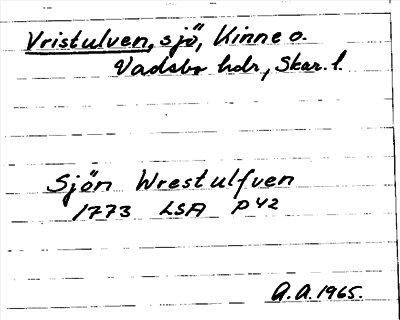 Vristulven, sjö, Kinne o.
Vadsbo hdr, Skar. l.
Sjön Wrestulfven
1773 LSA P42
A.A. 1965.